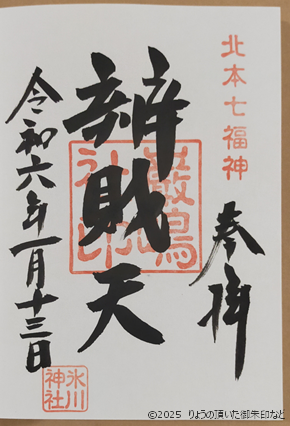 北本七福神
奉拝
辨財天
嚴島
社印
令和六年一月十三日
氷川
神社
©2025 りょうの頂いた御朱印など